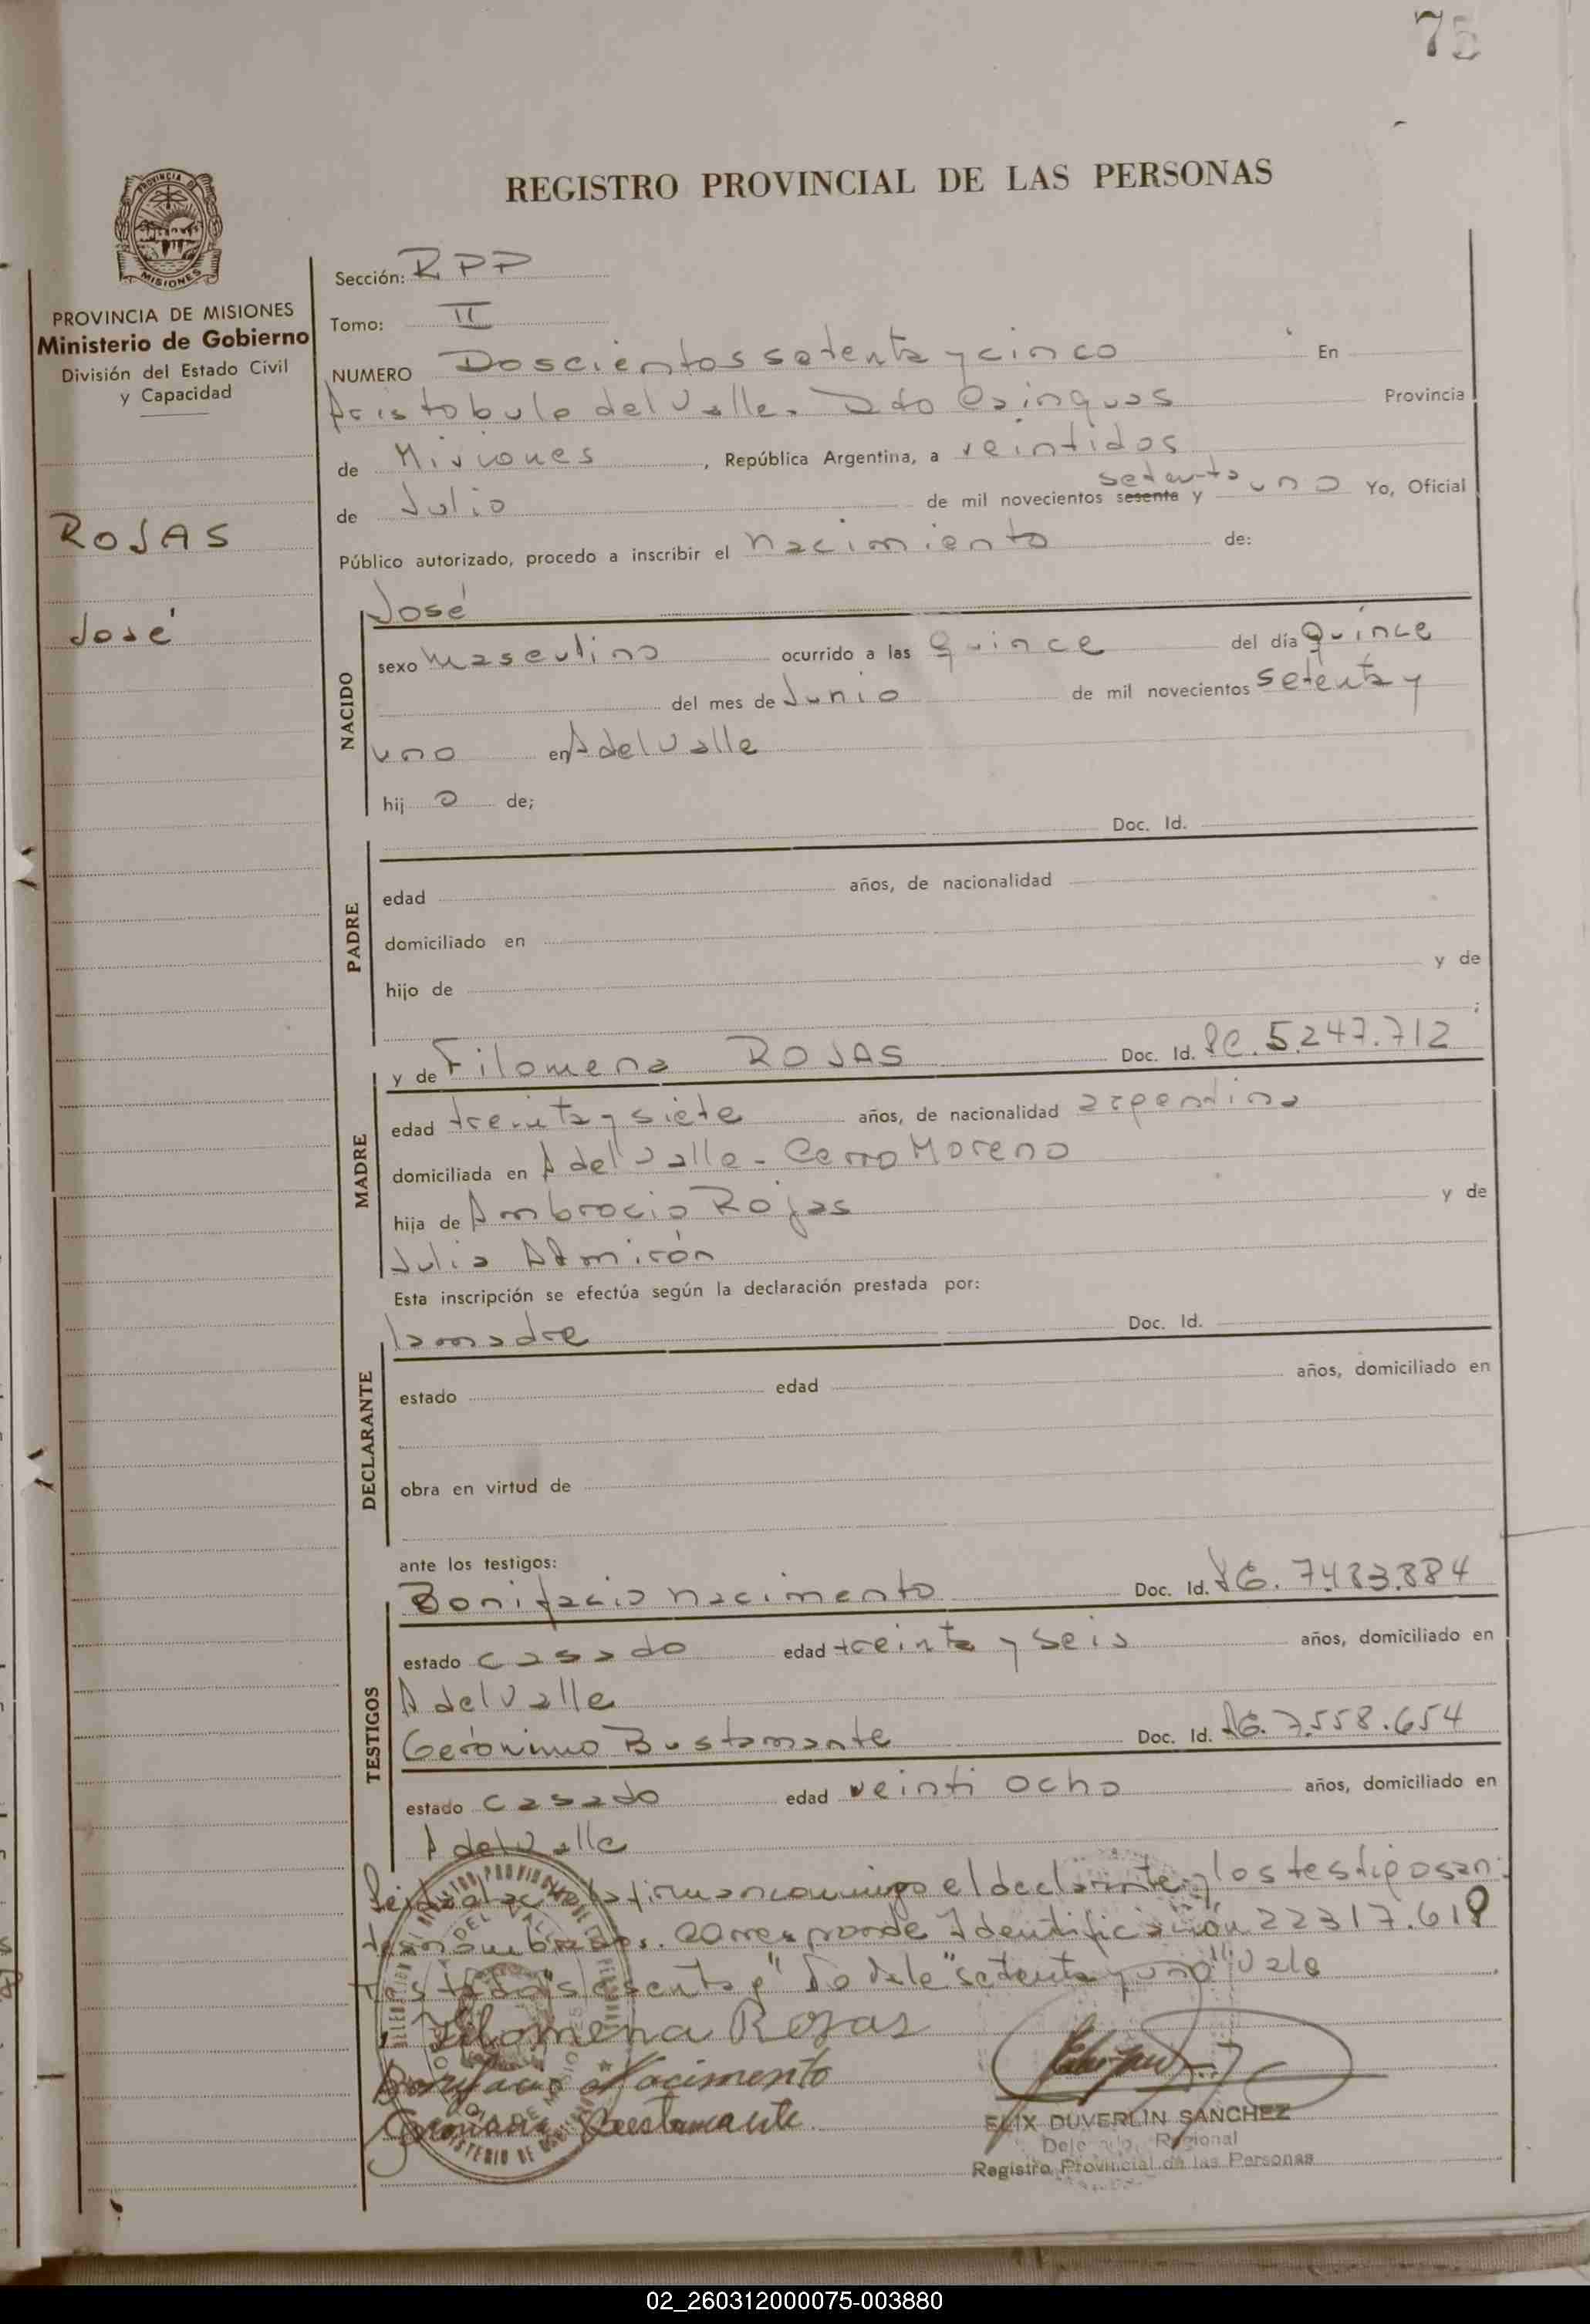 75
REGISTRO PROVINCIAL DE LAS PERSONAS
PROVINCIA DE MISIONES
Ministerio de Gobierno
División del Estado Civil
y Capacidad
ROJAS
José
Sección: RPP
Tomo: II
NUMERO Doscientos setenta y cinco En
Aristobulo del Valle. Dto Cainguas Provincia
de Misiones, República Argentina, a veintidos
setenta
de Julio de mil novecientos sesenta y uno Yo, Oficial
Público autorizado, procedo a inscribir el nacimiento de:
NACIDO
José
sexo masculino ocurrido a las quince del día quince
del mes de Junio de mil novecientos setenta y
uno en A del Valle
hij o de;
PADRE
Doc. Id.
edad años, de nacionalidad
domiciliado en
hijo de y de
;
MADRE
y de Filomena ROJAS Doc. Id. LC. 5.247.712
edad treinta y siete años, de nacionalidad argentina
domiciliada en A del Valle - Cerro Moreno
hija de Ambrocio Rojas y de
Julia Almirón
Esta inscripción se efectúa según la declaración prestada por:
DECLARANTE
la madre Doc. Id.
estado edad años, domiciliado en
obra en virtud de
ante los testigos:
TESTIGOS
Bonifacio Nacimento Doc. Id. 7.483.884
estado casado edad treinta y seis años, domiciliado en
A del Valle
Gerónimo Bustamante Doc. Id. 7.558.654
estado casado edad veinti ocho años, domiciliado en
A del Valle
Leida el acta la firman conmigo el declarante y los testigos an-
tes nombrados. Corresponde Identificación 22317.619
Testado "sesenta y" "setenta y uno" Vale
Filomena Rojas
Bonifacio Nacimento
Bustamante
ELIX DUVERLIN SANCHEZ
Delegado Regional
Registro Provincial de las Personas
02_260312000075-003880